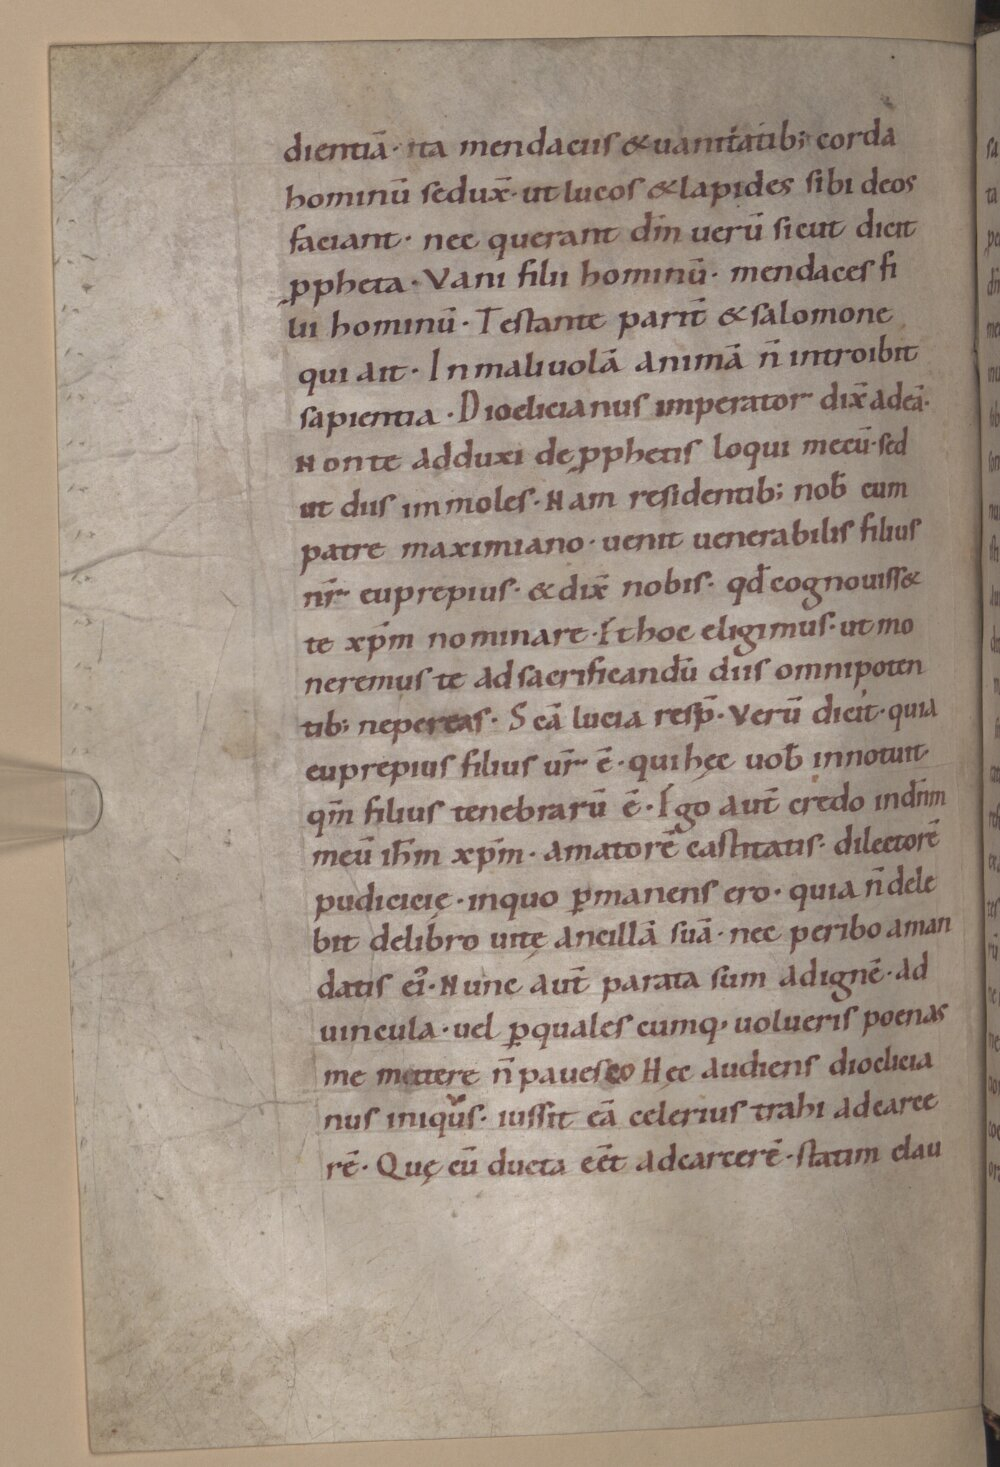 dientiā· ita mendaciis &uanitatib; corda
hominū sedux̄· ut lucos &lapides sibi deos
faciant· nec querant dn̄m uerū sicut dicit
ꝓpheta· Vani filii hominū· mendaces fi
lii hominū· Testante parit̄ &salomone
qui ait· Inmaliuolā animā n̄ introibit
sapientia· Dioclicianus imperator dix̄ adeā·
Non te adduxi de ꝓphetis loqui mecū· sed
ut diis immoles· Nam residentib; nob̄ cum
patre maximiano· uenit uenerabilis filius
nr̄ euprepius· &dix̄ nobis· qd̄ cognouiss&
te xp̄m nominare· Et hoc eligimus· ut mo
neremus te ad sacrificandū diis omnipoten
tib; nepereas· Scā lucia resp̄· Verū dicit· quia
euprepius filius ur̄ ē· qui hęc uob̄ innotuit·
qm̄ filius tenebrarū ē· Ego aut̄ credo indn̄m
meū ih̄m xp̄m· amatorē castitatis· dilectorē
pudicicię· inquo ꝑmanens ero· quia n̄ dele
bit delibro uitę ancillā suā· nec peribo aman
datis ei᷒· Nunc aut̄ parata sum adignē· ad
uincula· uel ꝑquales cumq; uolueris poenas
me mittere n̄ pauesco Hęc audiens dioclicia
nus iniqus· iussit eā celerius trahi adcarce
rē· Quę cū ducta eēt adcarcerē· statim clau